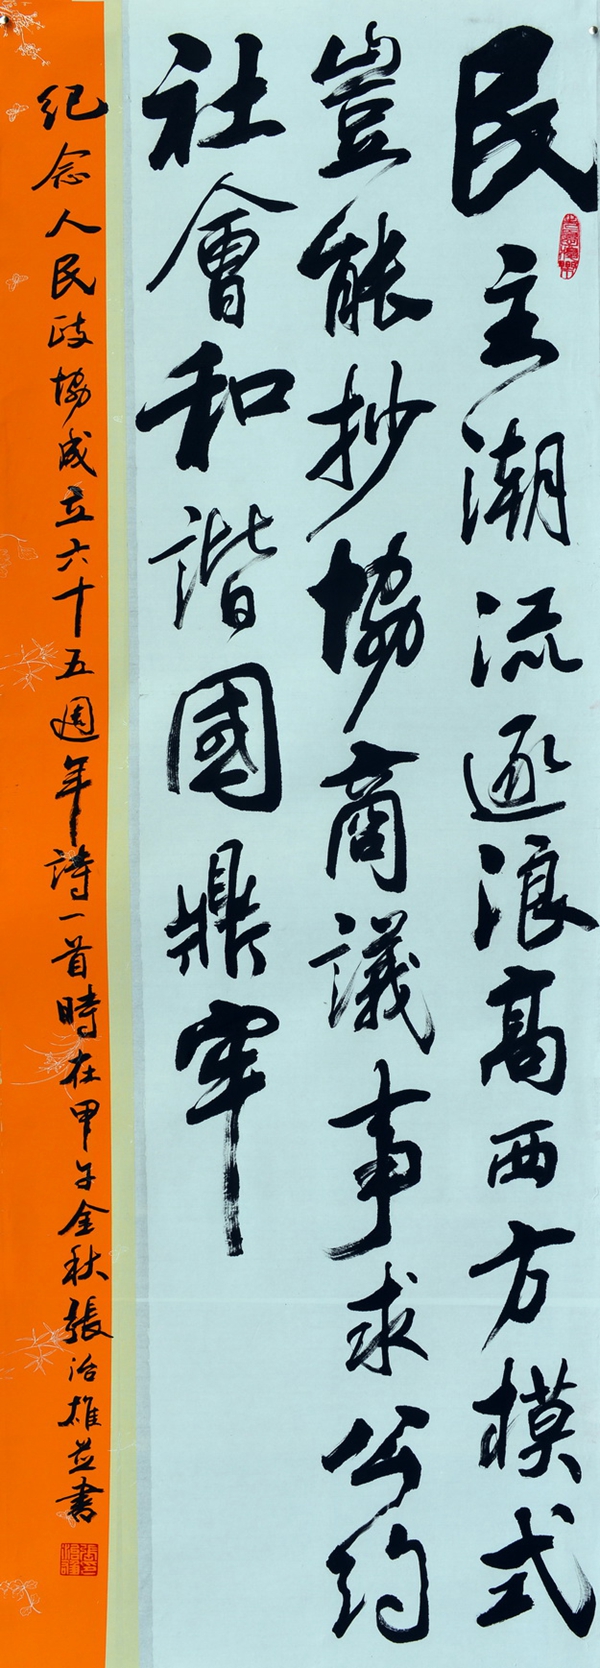 民主潮流逐浪高西方模式
豈能抄協商議事求公約
社會和諧國鼎牢
紀念人民政協成立六十五週年詩一首時在甲午金秋張治雄並書